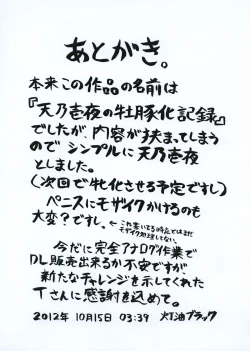 あとがき。
本来この作品の名前は
『天乃壱夜の牡豚化記録』
でしたが、内容が狭まってしまう
のでシンプルに天乃壱夜
としました。
(次回で牝化させる予定ですし)
ペニスにモザイクかけるのも
大変?ですし、←これ書いてる時点ではまだ
モザイク処理してない。
今だに完全アナログ作業で
DL販売出来るか不安ですが、
新たなチャレンジを示してくれた
Tさんに感謝を込めて。
2012年 10月15日 03:39 灯油ブラック